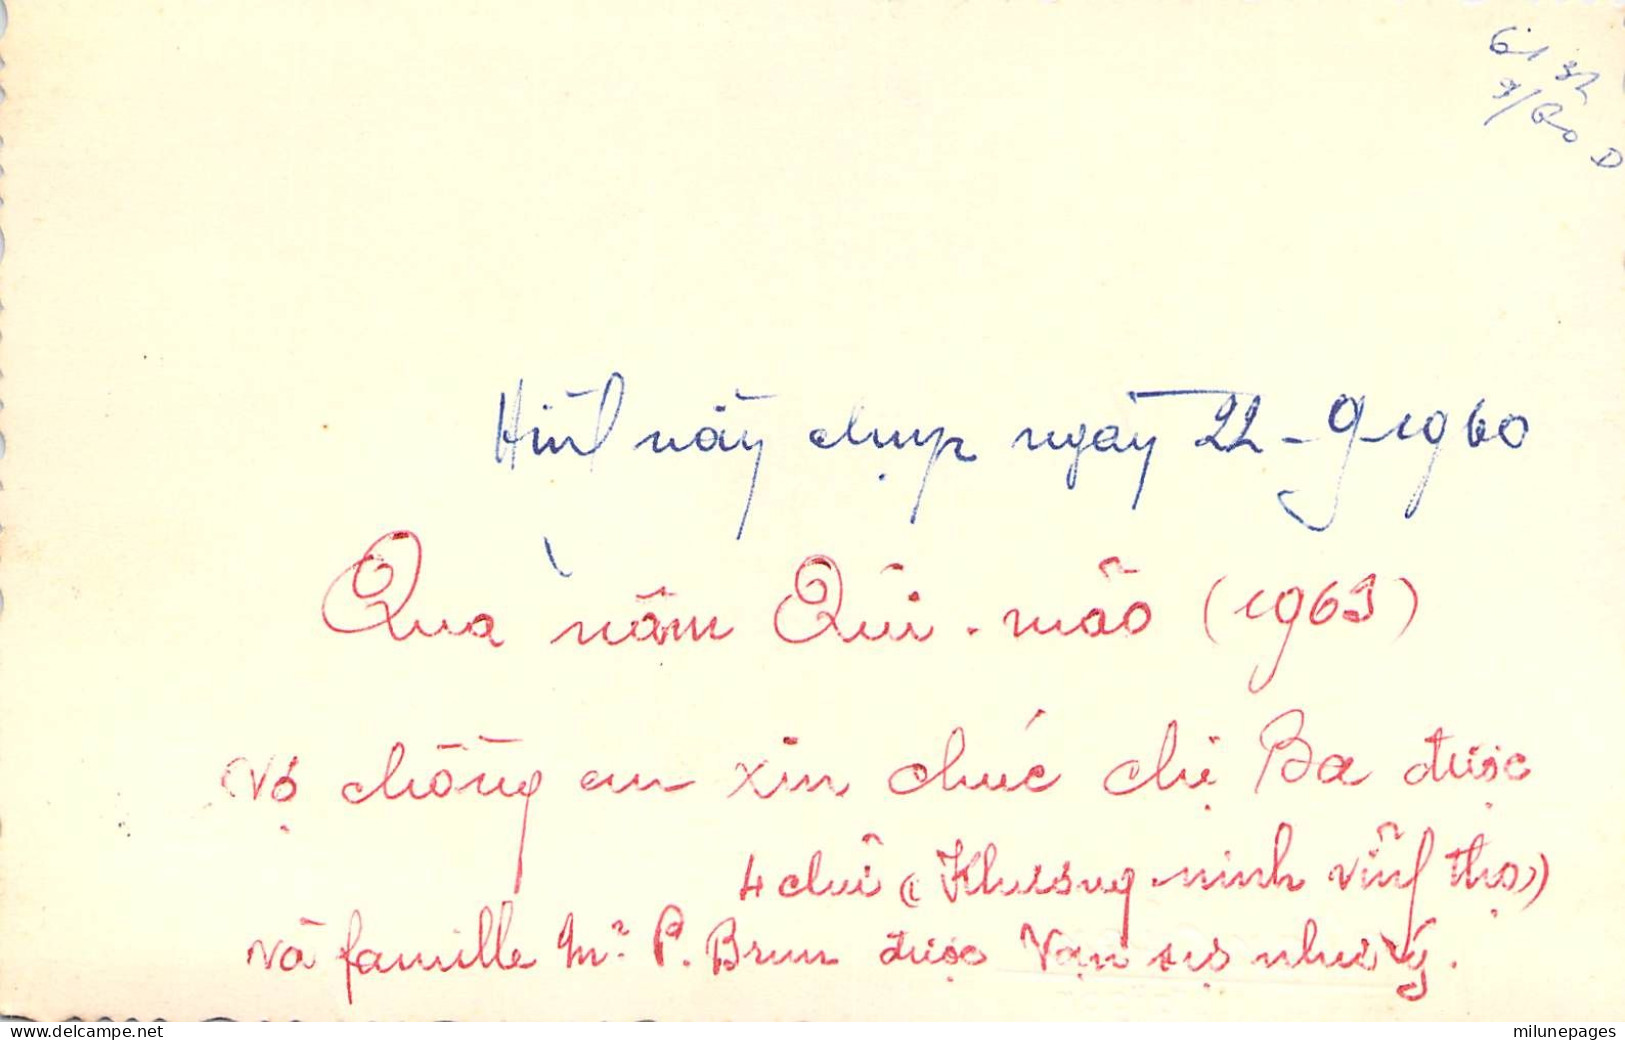 Hình nầy chụp ngày 22-9-1960
Qua năm Qúi-mão (1963)
Vợ chồng em xin chúc chị Ba được
4 chữ (Khương ninh vĩnh thọ)
và famille Mr. P. Brun được Vạn sự như ý.
www.delcampe.net
milunepages